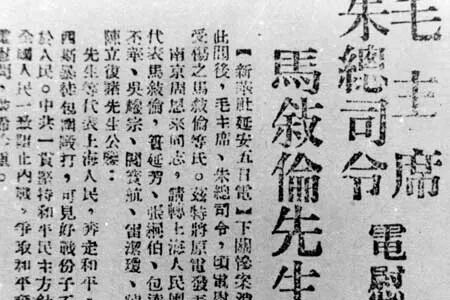 毛主席
朱總司令 電慰
馬敘倫先生
【新華社延安五日電】下關慘案
此間後，毛主席、朱總司令，頃電慰
受傷之馬敘倫等氏。茲特將原電發
南京周恩來同志，請轉上海人民團
代表馬敘倫、簣延芳、張絅伯、包
不華、吳耀宗、閻寶航、雷潔瓊、
陳立復諸先生公鑒：
先生等代表上海人民，奔走和平，
西斯暴徒包圍毆打，可見好戰份子不
於人民。中共一貫堅持和平民主方針
全國人民一致阻止內戰，爭取和平
電慰問，